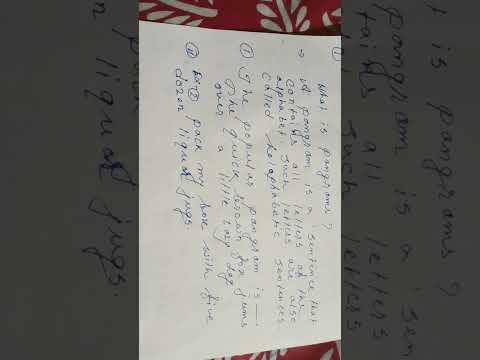 ①
What is pangrams?
→ A pangram is a sentence that
contains all letters of the
alphabet. Such letters are also
called holophabetic sentences
① The popular pangram is —
The quick brown fox jums
over a little lazy dog
② pack my box with five
dozen liquor jugs